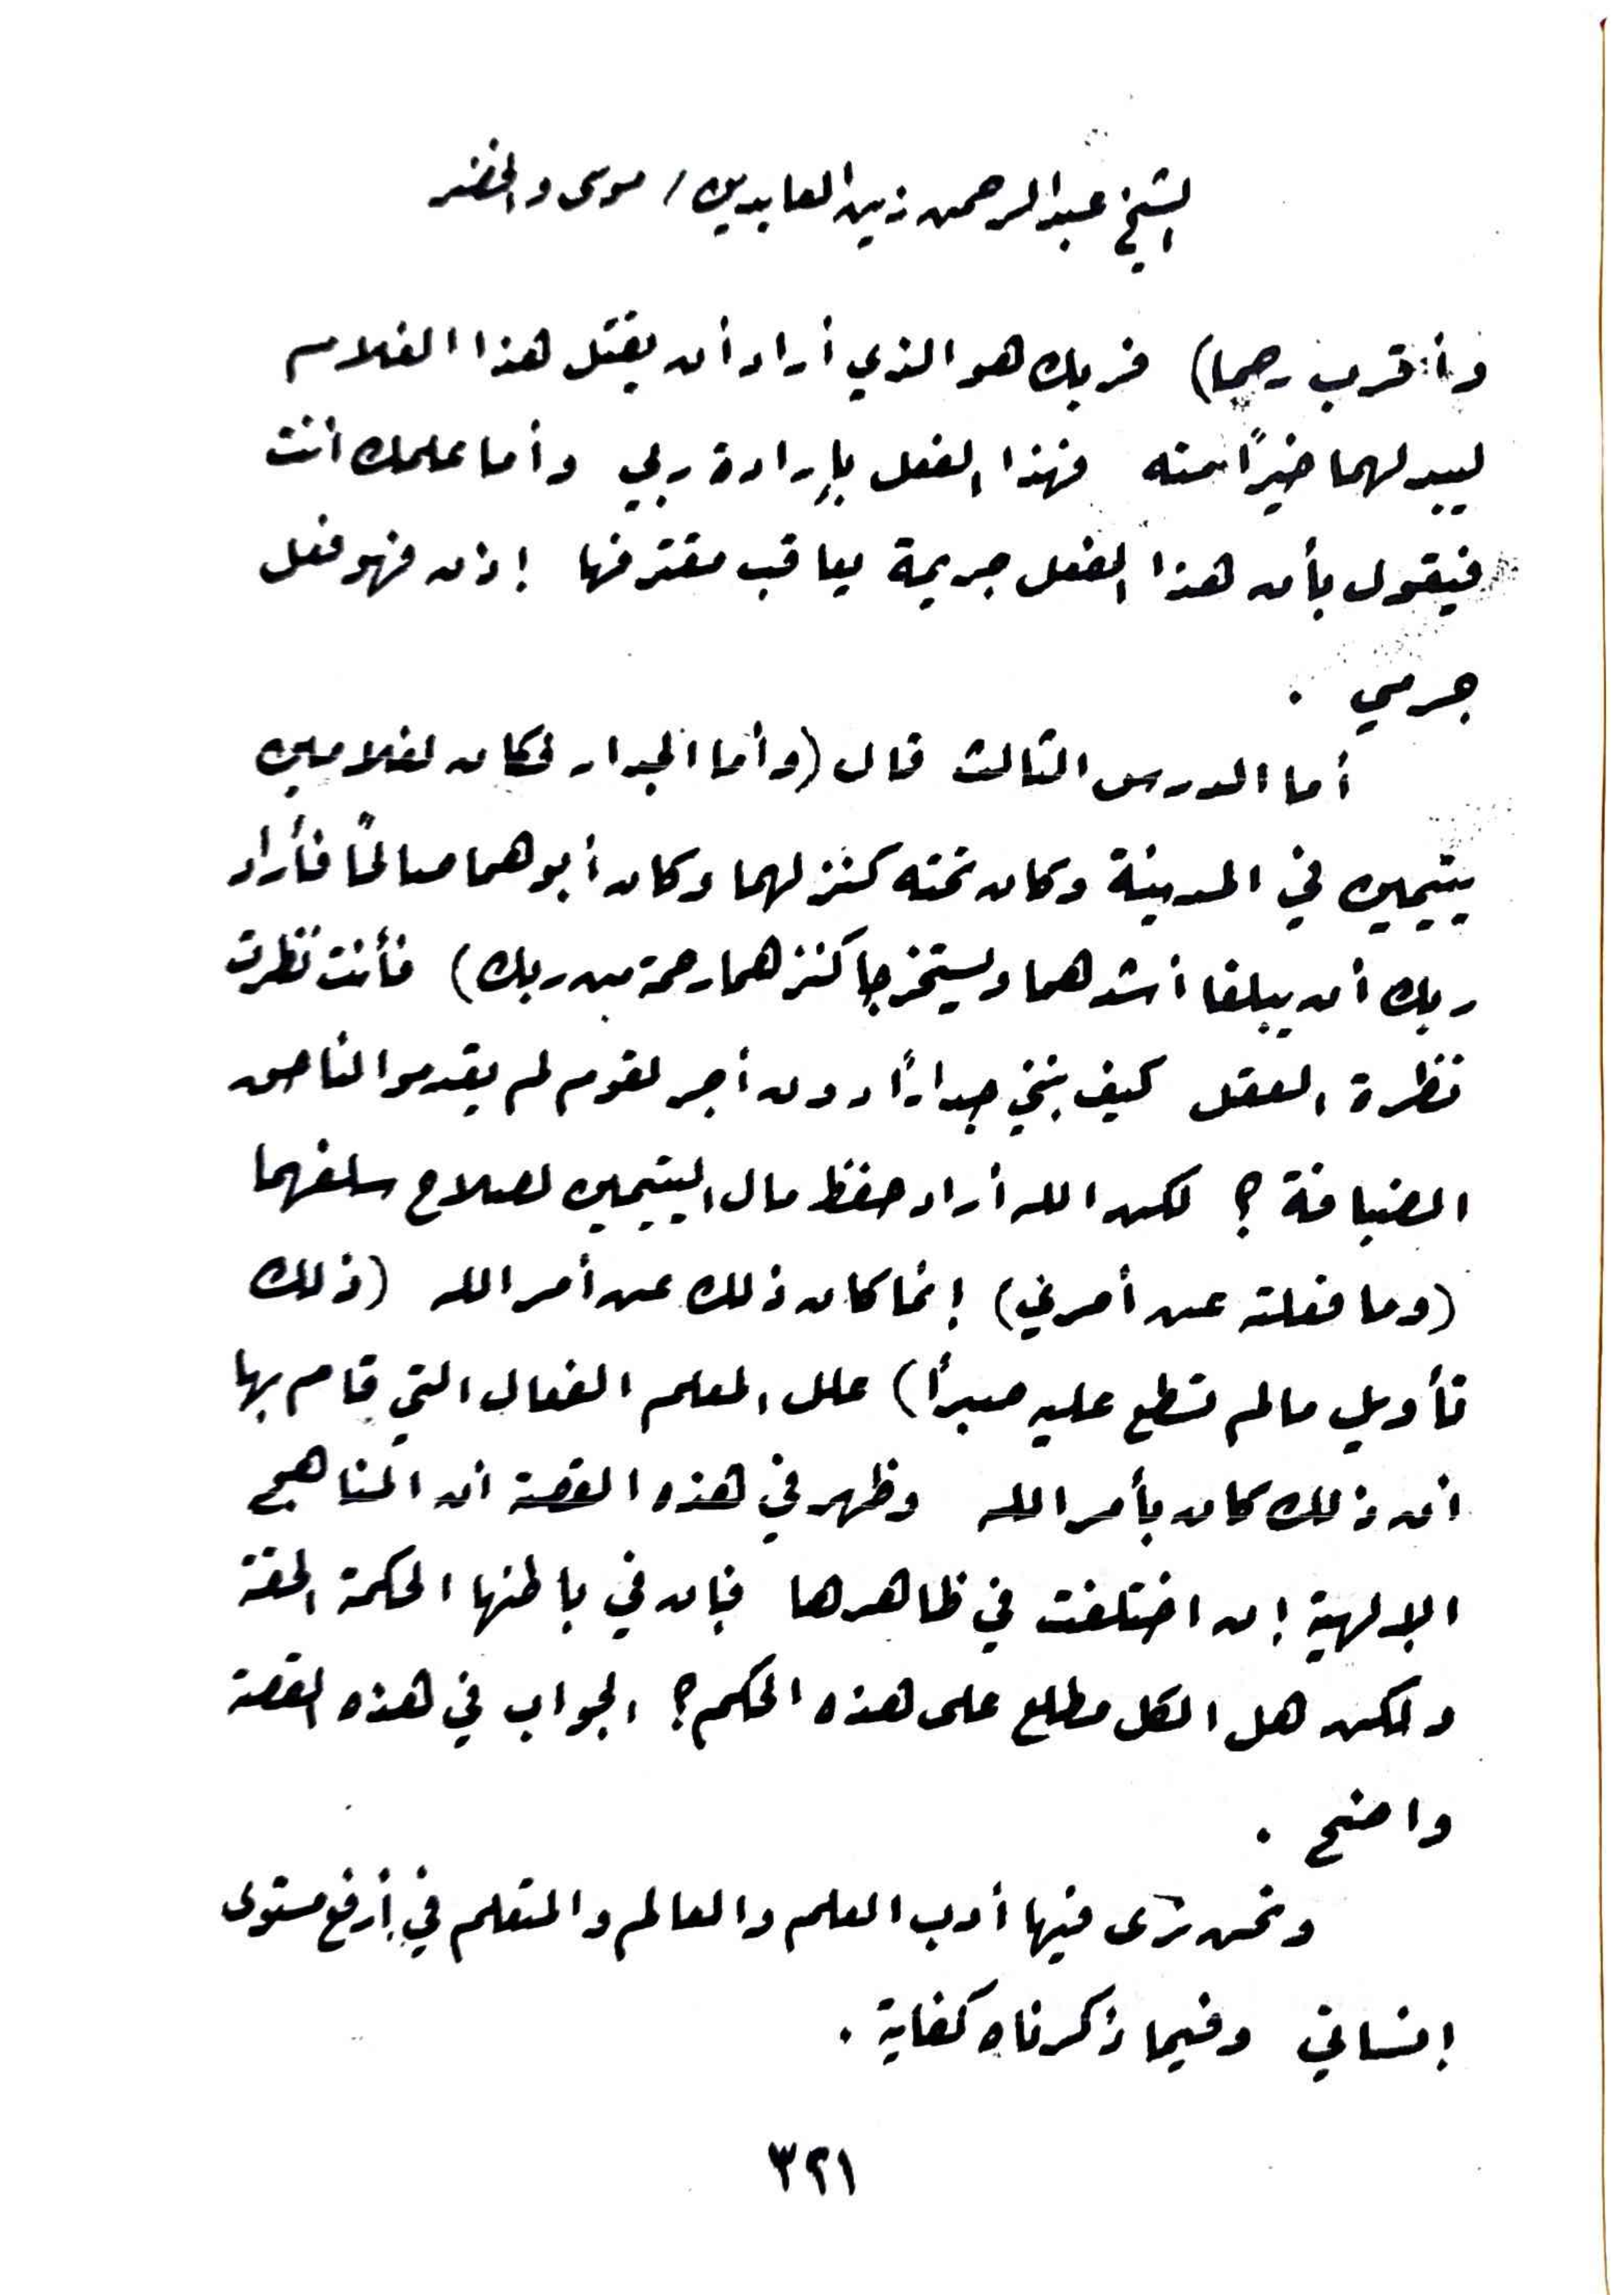 الشيخ عبدالرحمن زين العابدين / موسى والخضر
وأقرب رحما) فربك هو الذي أراد أن يقتل هذا الغلام
ليبدلهما خيراً منه فهذا الفعل بإرادة ربي وأما علمك أنت
فيقول بأن هذا الفعل جريمة يعاقب مقترفها إذن فهو فعل
جرمي .
أما الدرس الثالث قال (وأما الجدار فكان لغلامين
يتيمين في المدينة وكان تحته كنز لهما وكان أبوهما صالحاً فأراد
ربك أن يبلغا أشدهما ويستخرجا كنزهما رحمة من ربك) فأنت نظرت
نظرة العقل كيف بنى جداراً دون أجر لقوم لم يقدموا لنا حق
الضيافة ؟ لكن الله أراد حفظ مال اليتيمين لصلاح سلفهما
(وما فعلته عن أمري) إنما كان ذلك عن أمر الله (ذلك
تأويل مالم تسطع عليه صبراً) علل المعلم الفعال التي قام بها
ان ذلك كان بأمر الله وظهر في هذه القصة ان المناهج
الإلهية إن اختلفت في ظاهرها فإن في باطنها الحكمة الحقة
ولكن هل الكل مطلع على هذه الحكم ؟ الجواب في هذه القصة
واضح .
ونحن نرى فيها أدب العلم والعالم والمتعلم في أرفع مستوى
إنساني وفيما ذكرناه كفاية .
٣٢١